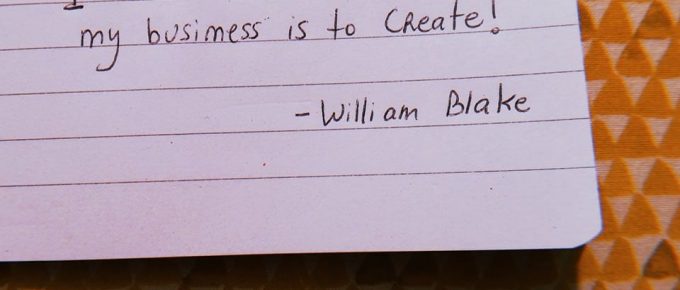 my business is to Create!
- William Blake